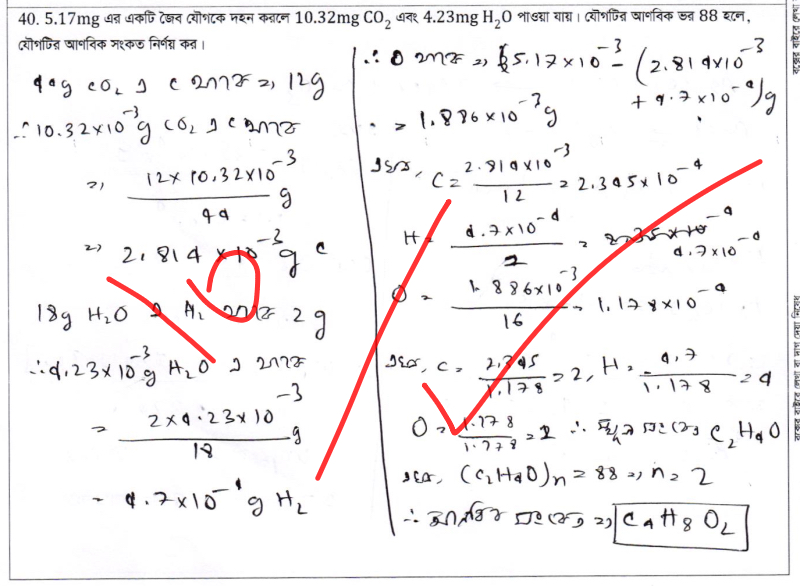 40. 5.17mg এর একটি জৈব যৌগকে দহন করলে 10.32mg CO2 এবং 4.23mg H2O পাওয়া যায়। যৌগটির আণবিক ভর 88 হলে,
যৌগটির আণবিক সংকত নির্ণয় কর।
44g CO2 এ C থাকে => 12g
∴ 10.32×10^-3 g CO2 এ C থাকে
=> 12×10.32×10^-3 / 44 g
=> 2.814×10^-3 g C
18g H2O এ H2 থাকে 2g
∴ 4.23×10^-3 g H2O এ থাকে
= 2×4.23×10^-3 / 18 g
= 4.7×10^-4 g H2
∴ O থাকে => 5.17×10^-3 - (2.814×10^-3
+ 4.7×10^-4) g
=> 1.886×10^-3 g
এখন, C = 2.814×10^-3 / 12 = 2.345×10^-4
H = 4.7×10^-4 / = 4.7×10^-4
O = 1.886×10^-3 / 16 = 1.178×10^-4
এখন, C = 2.345 / 1.178 = 2, H = 4.7 / 1.178 = 4
O = 1.178 / 1.178 = 1 ∴ স্থূল সংকেত C2H4O
এখন, (C2H4O)n = 88 => n = 2
∴ আণবিক সংকেত => C4H8O2